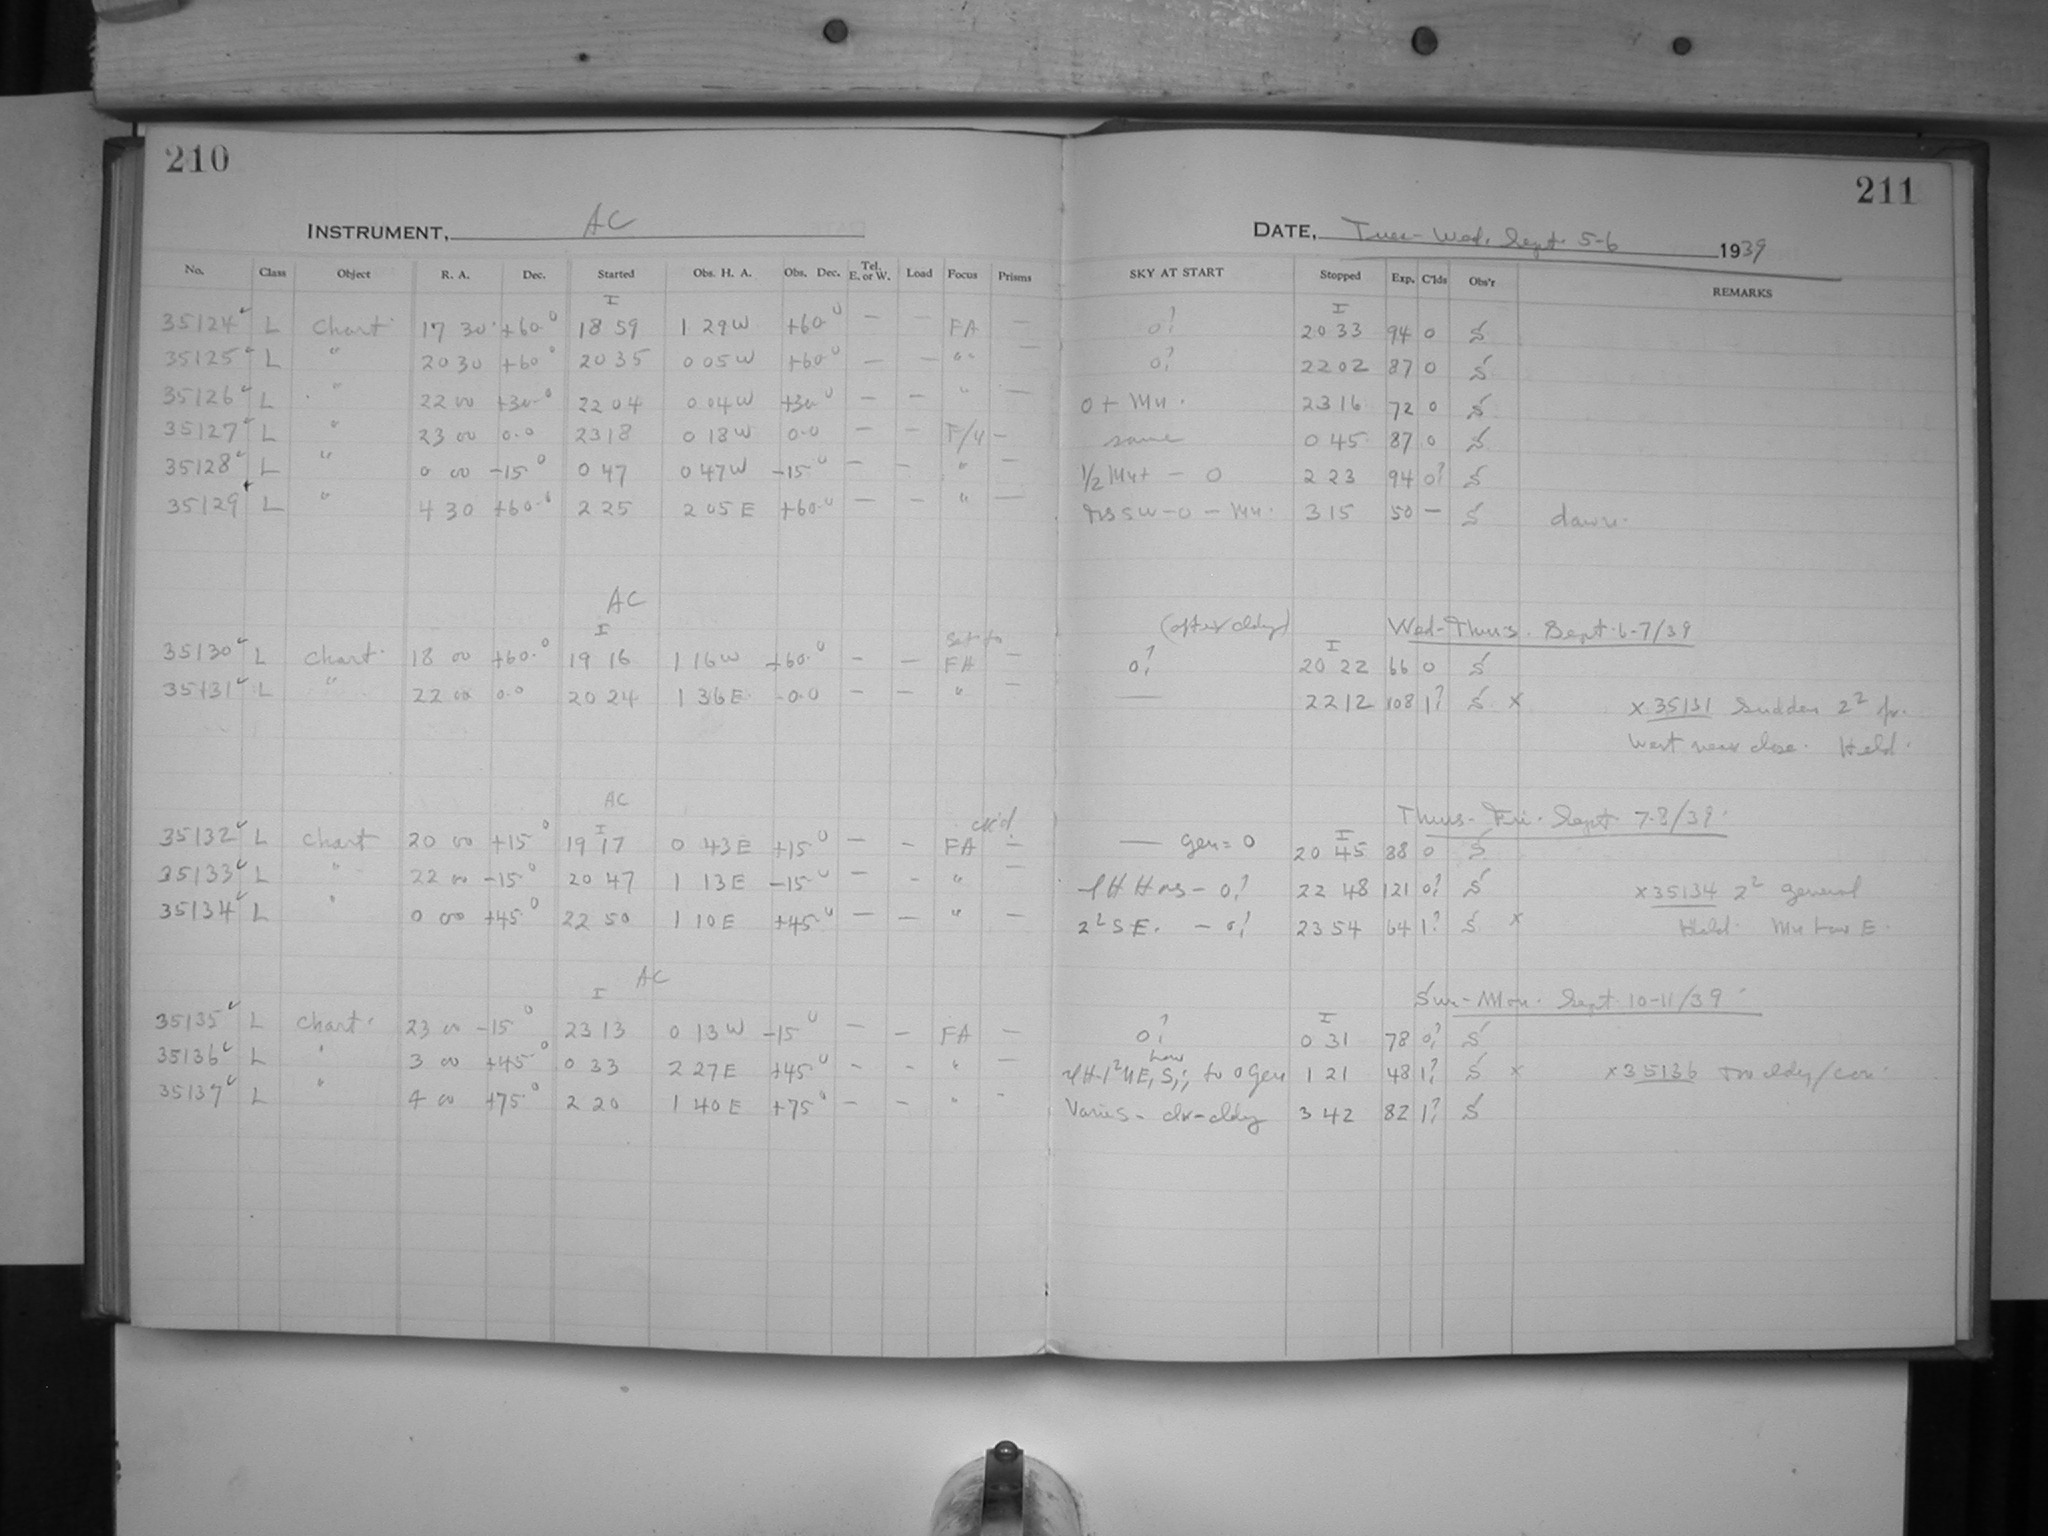 210
211
INSTRUMENT, AC
DATE, Tues-Wed. Sept. 5-6 1939
No. Class Object R. A. Dec. Started Obs. H. A. Obs. Dec. Tel. E. or W. Load Focus Prisms SKY AT START Stopped Exp. C'lds Obs'r REMARKS
I I
35124 L Chart 17 30 +60.0 18 59 1 29 W +60.0 — — FA — 0? 20 33 94 0 S
35125 L " 20 30 +60.0 20 35 0 05 W +60.0 — — " — 0? 22 02 87 0 S
35126 L " 22 00 +30.0 22 04 0 04 W +30.0 — — " — 0 + Mn. 23 16 72 0 S
35127 L " 23 00 0.0 23 18 0 18 W 0.0 — — — same 0 45 87 0 S
35128 L " 0 00 -15.0 0 47 0 47 W -15.0 — — " — 1/2 — 0 2 23 94 0? S
35129 L " 4 30 +60.0 2 25 2 05 E +60.0 — — " — SW - 0 - Mn. 3 15 50 — S dawn.
AC (after cldy) Wed-Thurs. Sept. 6-7/39
I Set to I
35130 L Chart 18 00 +60.0 19 16 1 16 W +60.0 — — FA — 0? 20 22 66 0 S
35131 L " 22 00 0.0 20 24 1 36 E -0.0 — — " — — 22 12 108 1? S x x 35131 Sudden 2² fr.
West near close. Held.
AC Thurs-Fri. Sept. 7-8/39
I ck'd I
35132 L Chart 20 00 +15.0 19 17 0 43 E +15.0 — — FA — — gen = 0 20 45 88 0 S
35133 L " 22 00 -15.0 20 47 1 13 E -15.0 — — " — - 0? 22 48 121 0? S x 35134 2² general
35134 L " 0 00 +45.0 22 50 1 10 E +45.0 — — " — 2² SE. - 0? 23 54 64 1? S x Held. Mn low E.
AC Sun-Mon. Sept. 10-11/39
I I
35135 L Chart 23 00 -15.0 23 13 0 13 W -15.0 — — FA — 0? 0 31 78 0? S
35136 L " 3 00 +45.0 0 33 2 27 E +45.0 — — " — low to 0 gen 1 21 48 1? S x x 35136 too cldy
35137 L " 4 00 +75.0 2 20 1 40 E +75.0 — — " - Varies - clr - cldy 3 42 82 1? S